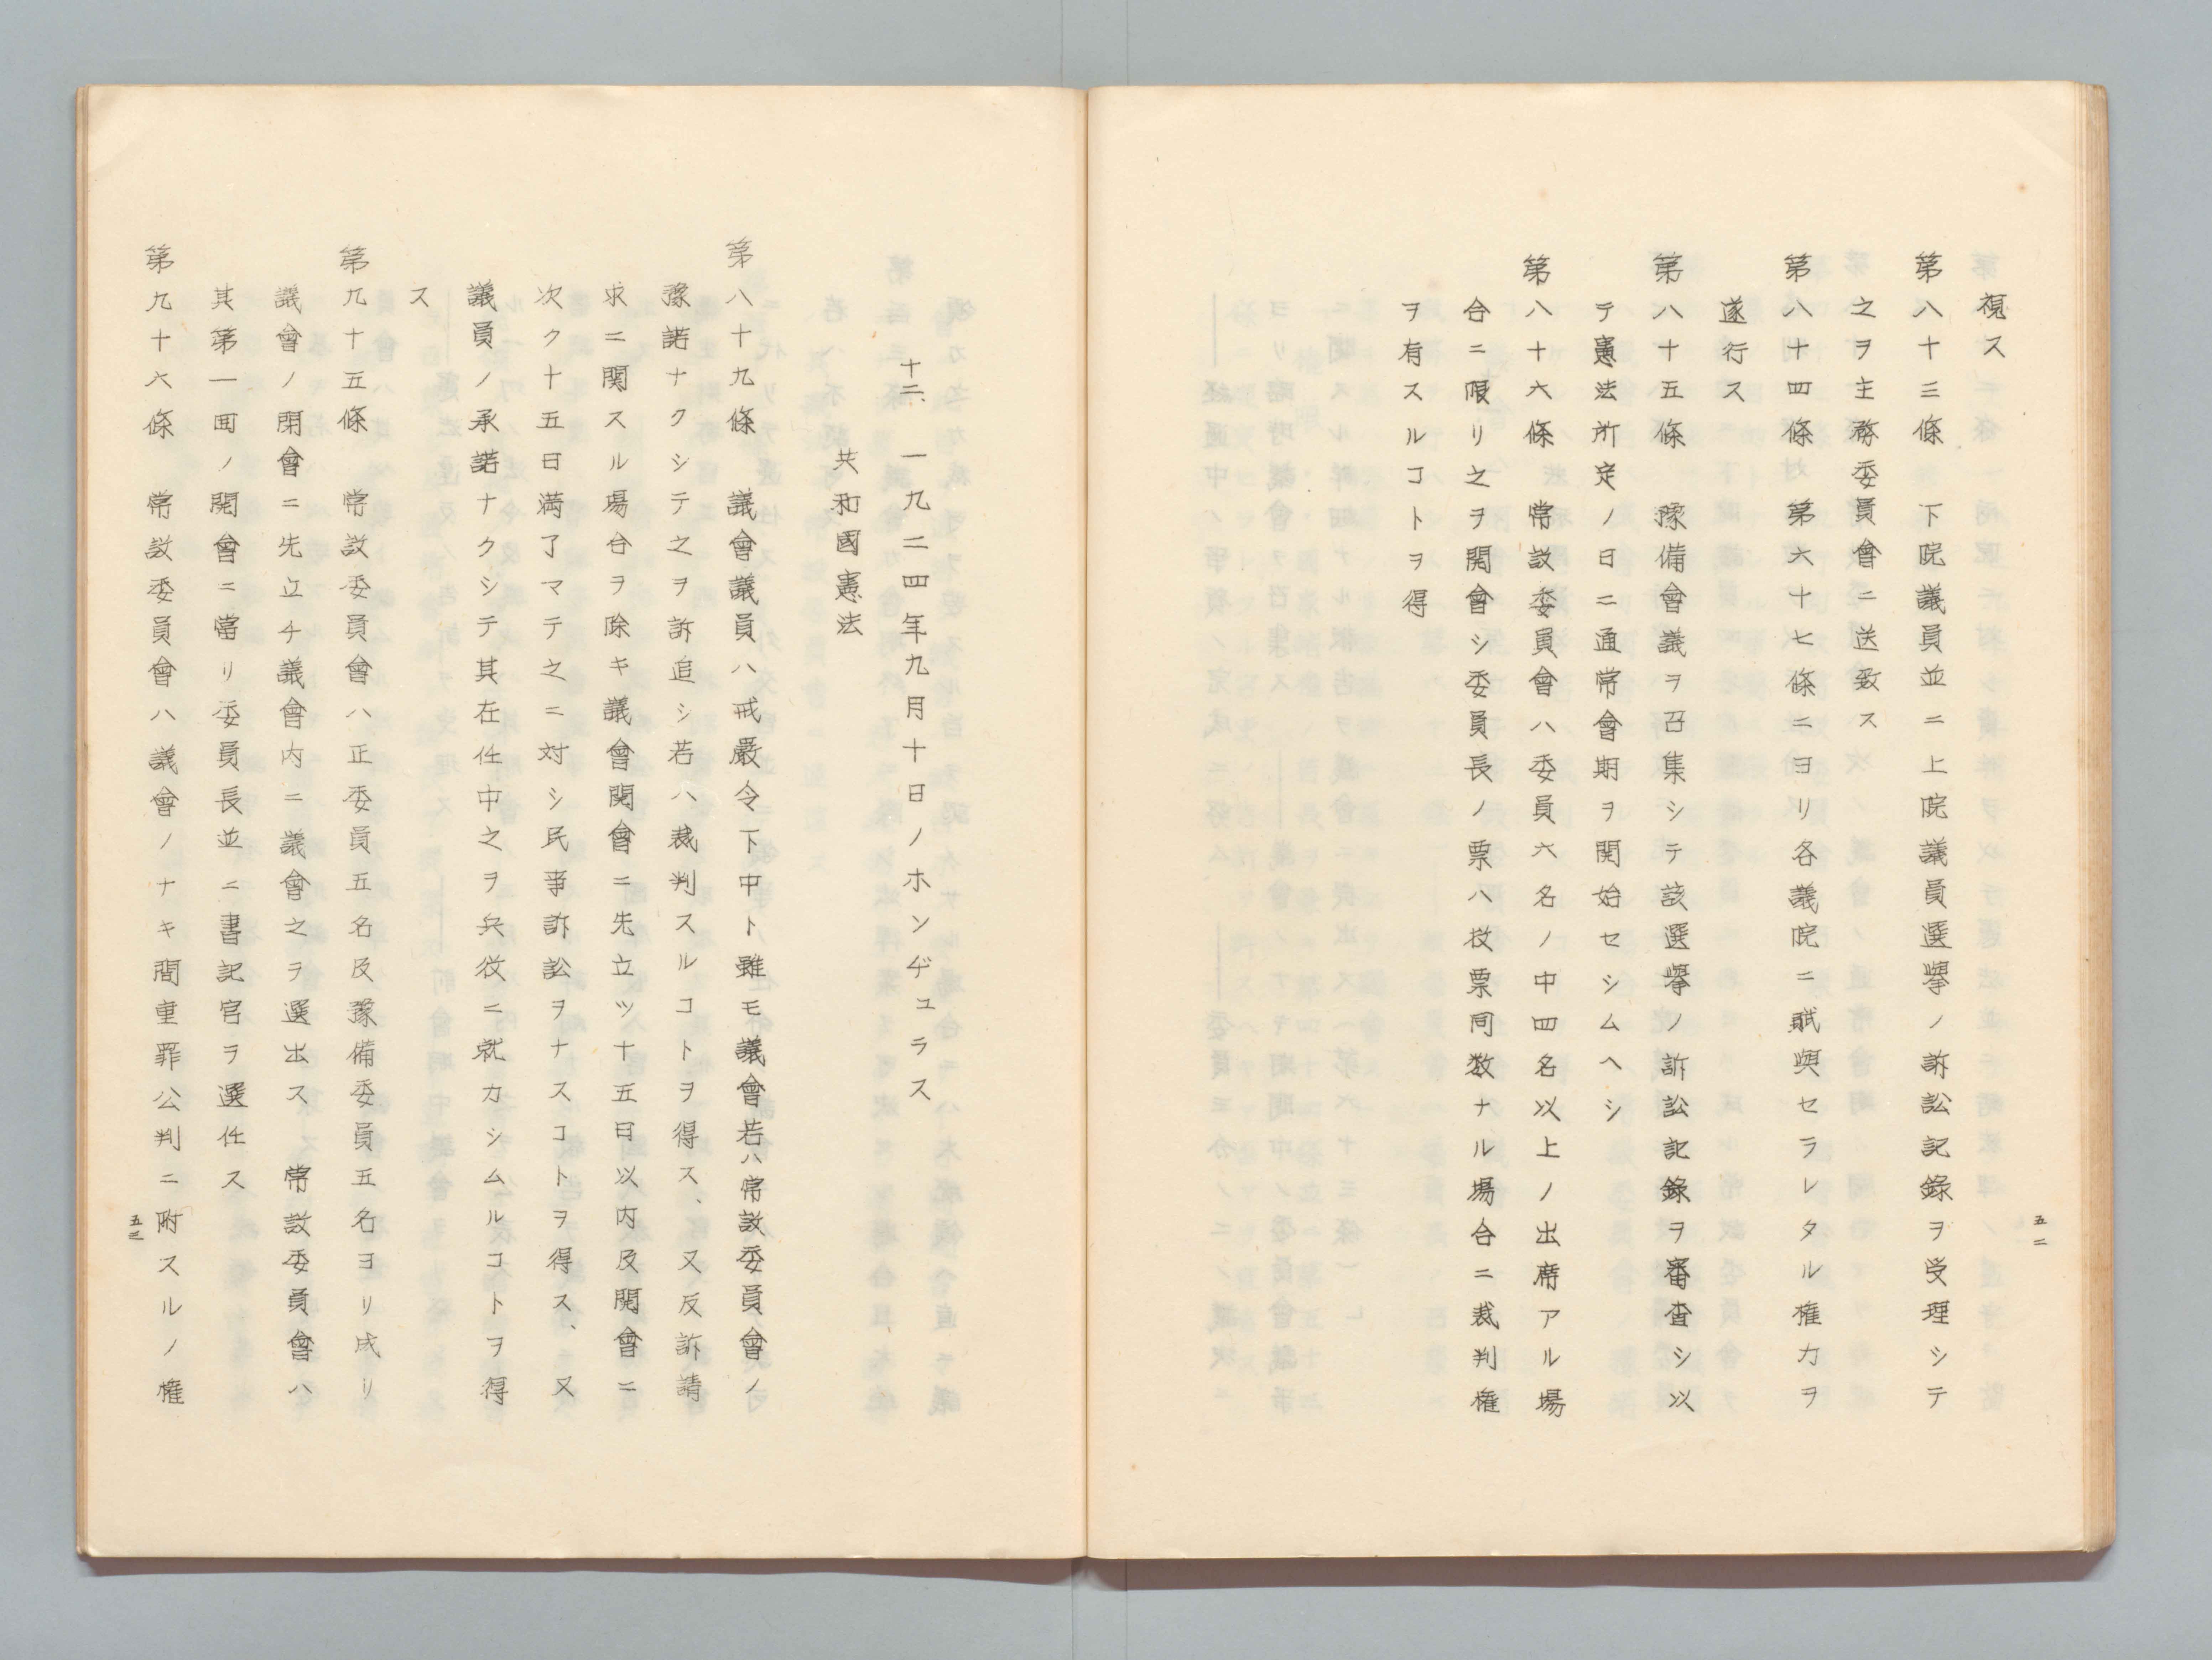 視ス
第八十三條　下院議員並ニ上院議員選擧ノ訴訟記錄ヲ受理シテ
之ヲ主務委員會ニ送致ス
第八十四條　第六十七條ニヨリ各議院ニ賦與セラレタル權力ヲ
遂行ス
第八十五條　豫備會議ヲ召集シテ該選擧ノ訴訟記錄ヲ審査シ以
テ憲法所定ノ日ニ通常會期ヲ開始セシムヘシ
第八十六條　常設委員會ハ委員六名ノ中四名以上ノ出席アル場
合ニ限リ之ヲ開會シ委員長ノ票ハ投票同数ナル場合ニ裁判權
ヲ有スルコトヲ得
五二
十二、一九二四年九月十日ノホンヂュラス
共和國憲法
第八十九條　議會議員ハ戒嚴令下中ト雖モ議會若ハ常設委員會ノ
豫諾ナクシテ之ヲ訴追シ若ハ裁判スルコトヲ得ス、又反訴請
求ニ関スル場合ヲ除キ議會開會ニ先立ツ十五日以内及開會ニ
次ク十五日満了マテ之ニ対シ民事訴訟ヲナスコトヲ得ス、又
議員ノ承諾ナクシテ其在任中之ヲ兵役ニ就カシムルコトヲ得
ス
第九十五條　常設委員會ハ正委員五名及豫備委員五名ヨリ成リ
議會ノ閉會ニ先立チ議會内ニ議會之ヲ選出ス　常設委員會ハ
其第一囬ノ開會ニ當リ委員長並ニ書記官ヲ選任ス
第九十六條　常設委員會ハ議會ノナキ間重罪公判ニ附スルノ權
五三